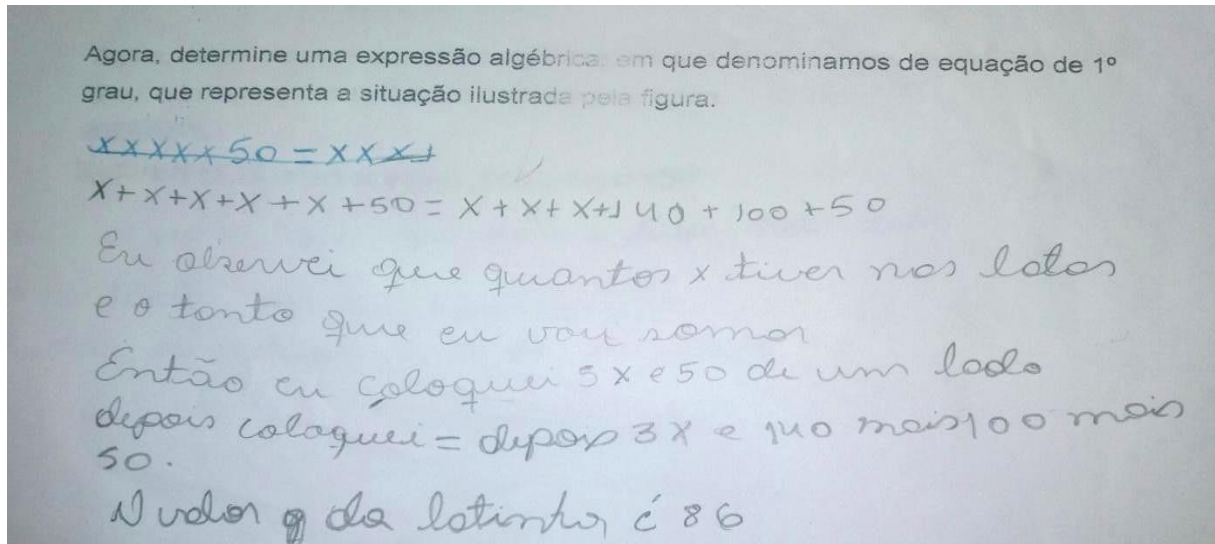 Agora, determine uma expressão algébrica, em que denominamos de equação de 1º
grau, que representa a situação ilustrada pela figura.
xxxxx50 = xxx+
x+x+x+x+x+50 = x+x+x+140+100+50
Eu observei que quantos x tiver nas latas
e o tanto que eu vou somar
Então eu coloquei 5x e 50 de um lado
depois coloquei = depois 3x e 140 mais 100 mais
50.
O valor da latinha é 86